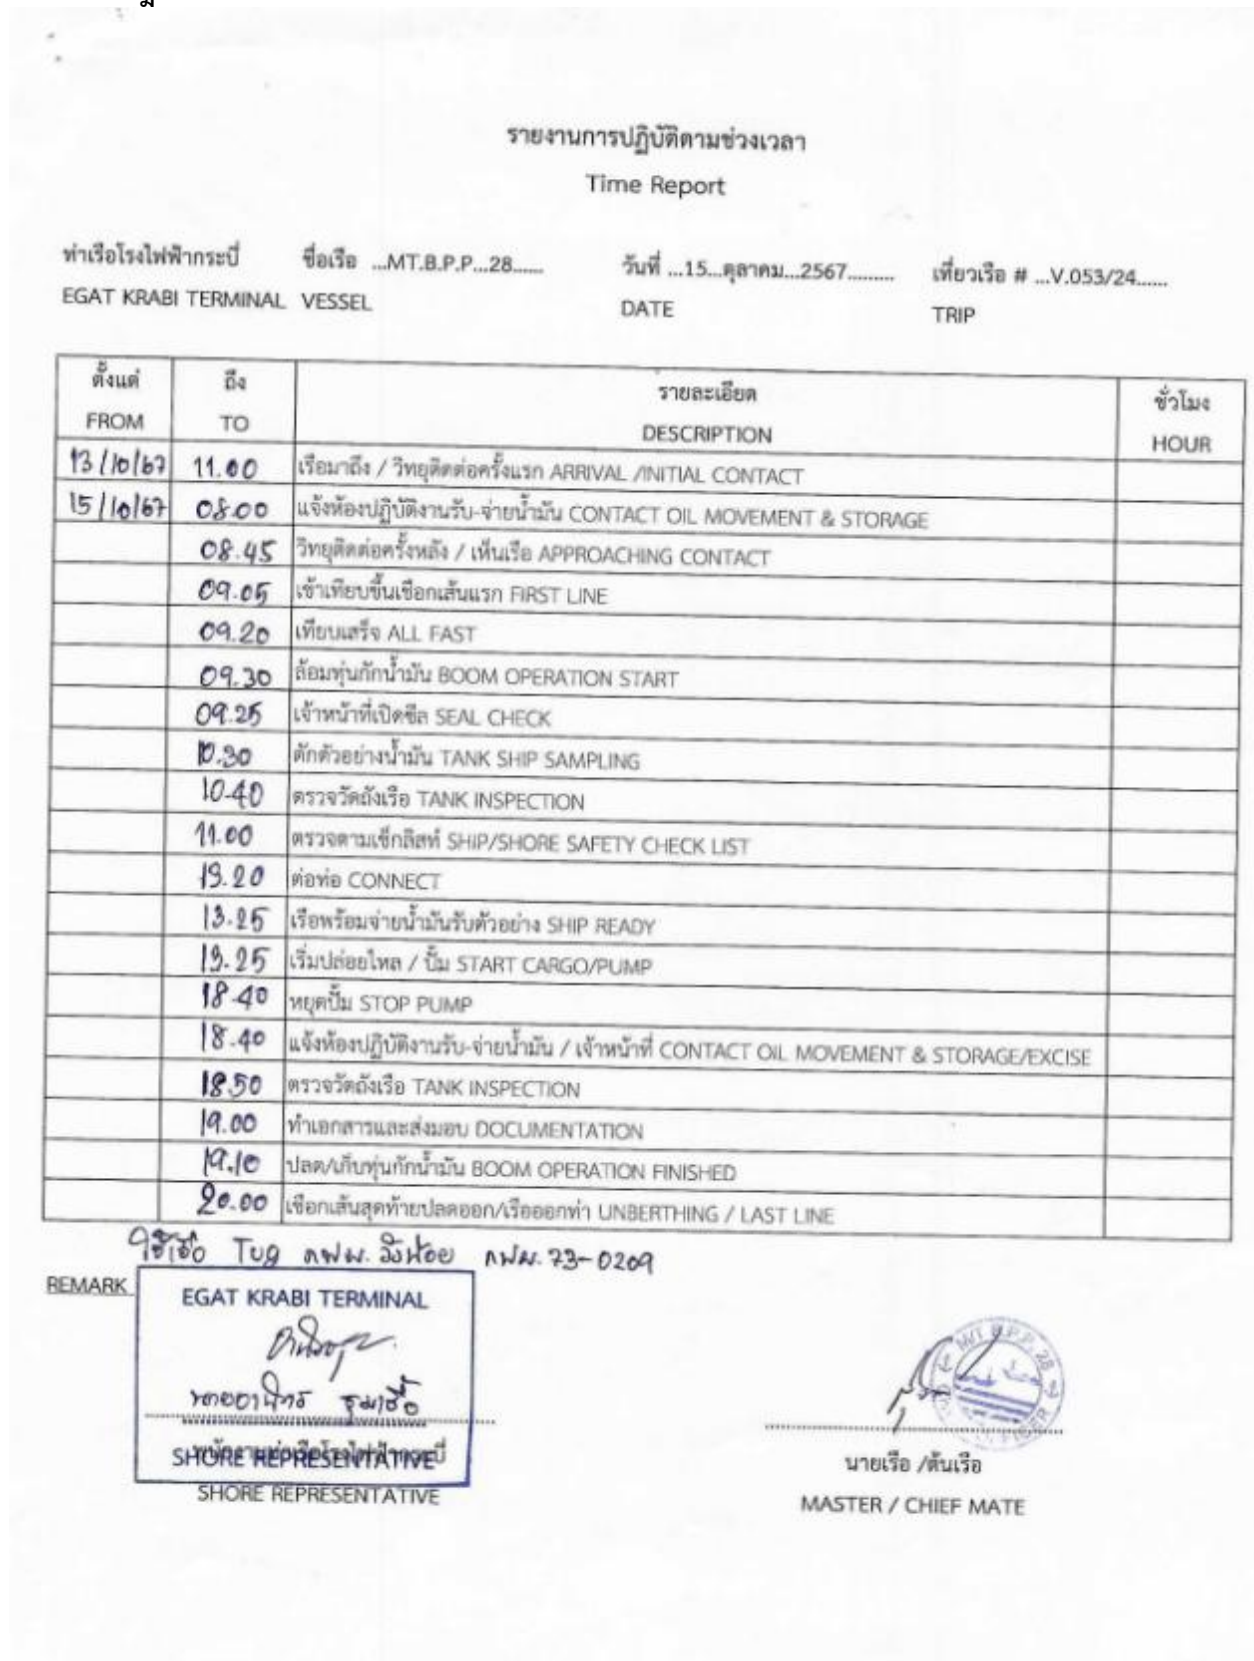 รายงานการปฏิบัติตามช่วงเวลา
Time Report
ท่าเรือโรงไฟฟ้ากระบี่ ชื่อเรือ ...MT.B.P.P...28...... วันที่ ...15...ตุลาคม...2567......... เที่ยวเรือ # ...V.053/24......
EGAT KRABI TERMINAL VESSEL DATE TRIP
ตั้งแต่ ถึง รายละเอียด ชั่วโมง
FROM TO DESCRIPTION HOUR
13/10/67 11.00 เรือมาถึง / วิทยุติดต่อครั้งแรก ARRIVAL /INITIAL CONTACT
15/10/67 08.00 แจ้งห้องปฏิบัติงานรับ-จ่ายน้ำมัน CONTACT OIL MOVEMENT & STORAGE
08.45 วิทยุติดต่อครั้งหลัง / เห็นเรือ APPROACHING CONTACT
09.05 เข้าเทียบขึ้นเชือกเส้นแรก FIRST LINE
09.20 เทียบเสร็จ ALL FAST
09.30 ล้อมทุ่นกักน้ำมัน BOOM OPERATION START
09.25 เจ้าหน้าที่เปิดซีล SEAL CHECK
10.30 ตักตัวอย่างน้ำมัน TANK SHIP SAMPLING
10.40 ตรวจวัดถังเรือ TANK INSPECTION
11.00 ตรวจตามเช็กลิสท์ SHIP/SHORE SAFETY CHECK LIST
13.20 ต่อท่อ CONNECT
13.25 เรือพร้อมจ่ายน้ำมันรับตัวอย่าง SHIP READY
13.25 เริ่มปล่อยไหล / ปั๊ม START CARGO/PUMP
18.40 หยุดปั๊ม STOP PUMP
18.40 แจ้งห้องปฏิบัติงานรับ-จ่ายน้ำมัน / เจ้าหน้าที่ CONTACT OIL MOVEMENT & STORAGE/EXCISE
18.50 ตรวจวัดถังเรือ TANK INSPECTION
19.00 ทำเอกสารและส่งมอบ DOCUMENTATION
19.10 ปลด/เก็บทุ่นกักน้ำมัน BOOM OPERATION FINISHED
20.00 เชือกเส้นสุดท้ายปลดออก/เรือออกท่า UNBERTHING / LAST LINE
ใช้เรือ Tug กฟผ. วังน้อย กฟผ. 73-0209
REMARK
EGAT KRABI TERMINAL
M/T B.P.P. 28
พนักงานท่าเรือโรงไฟฟ้ากระบี่
SHORE REPRESENTATIVE
นายเรือ /ต้นเรือ
SHORE REPRESENTATIVE
MASTER / CHIEF MATE